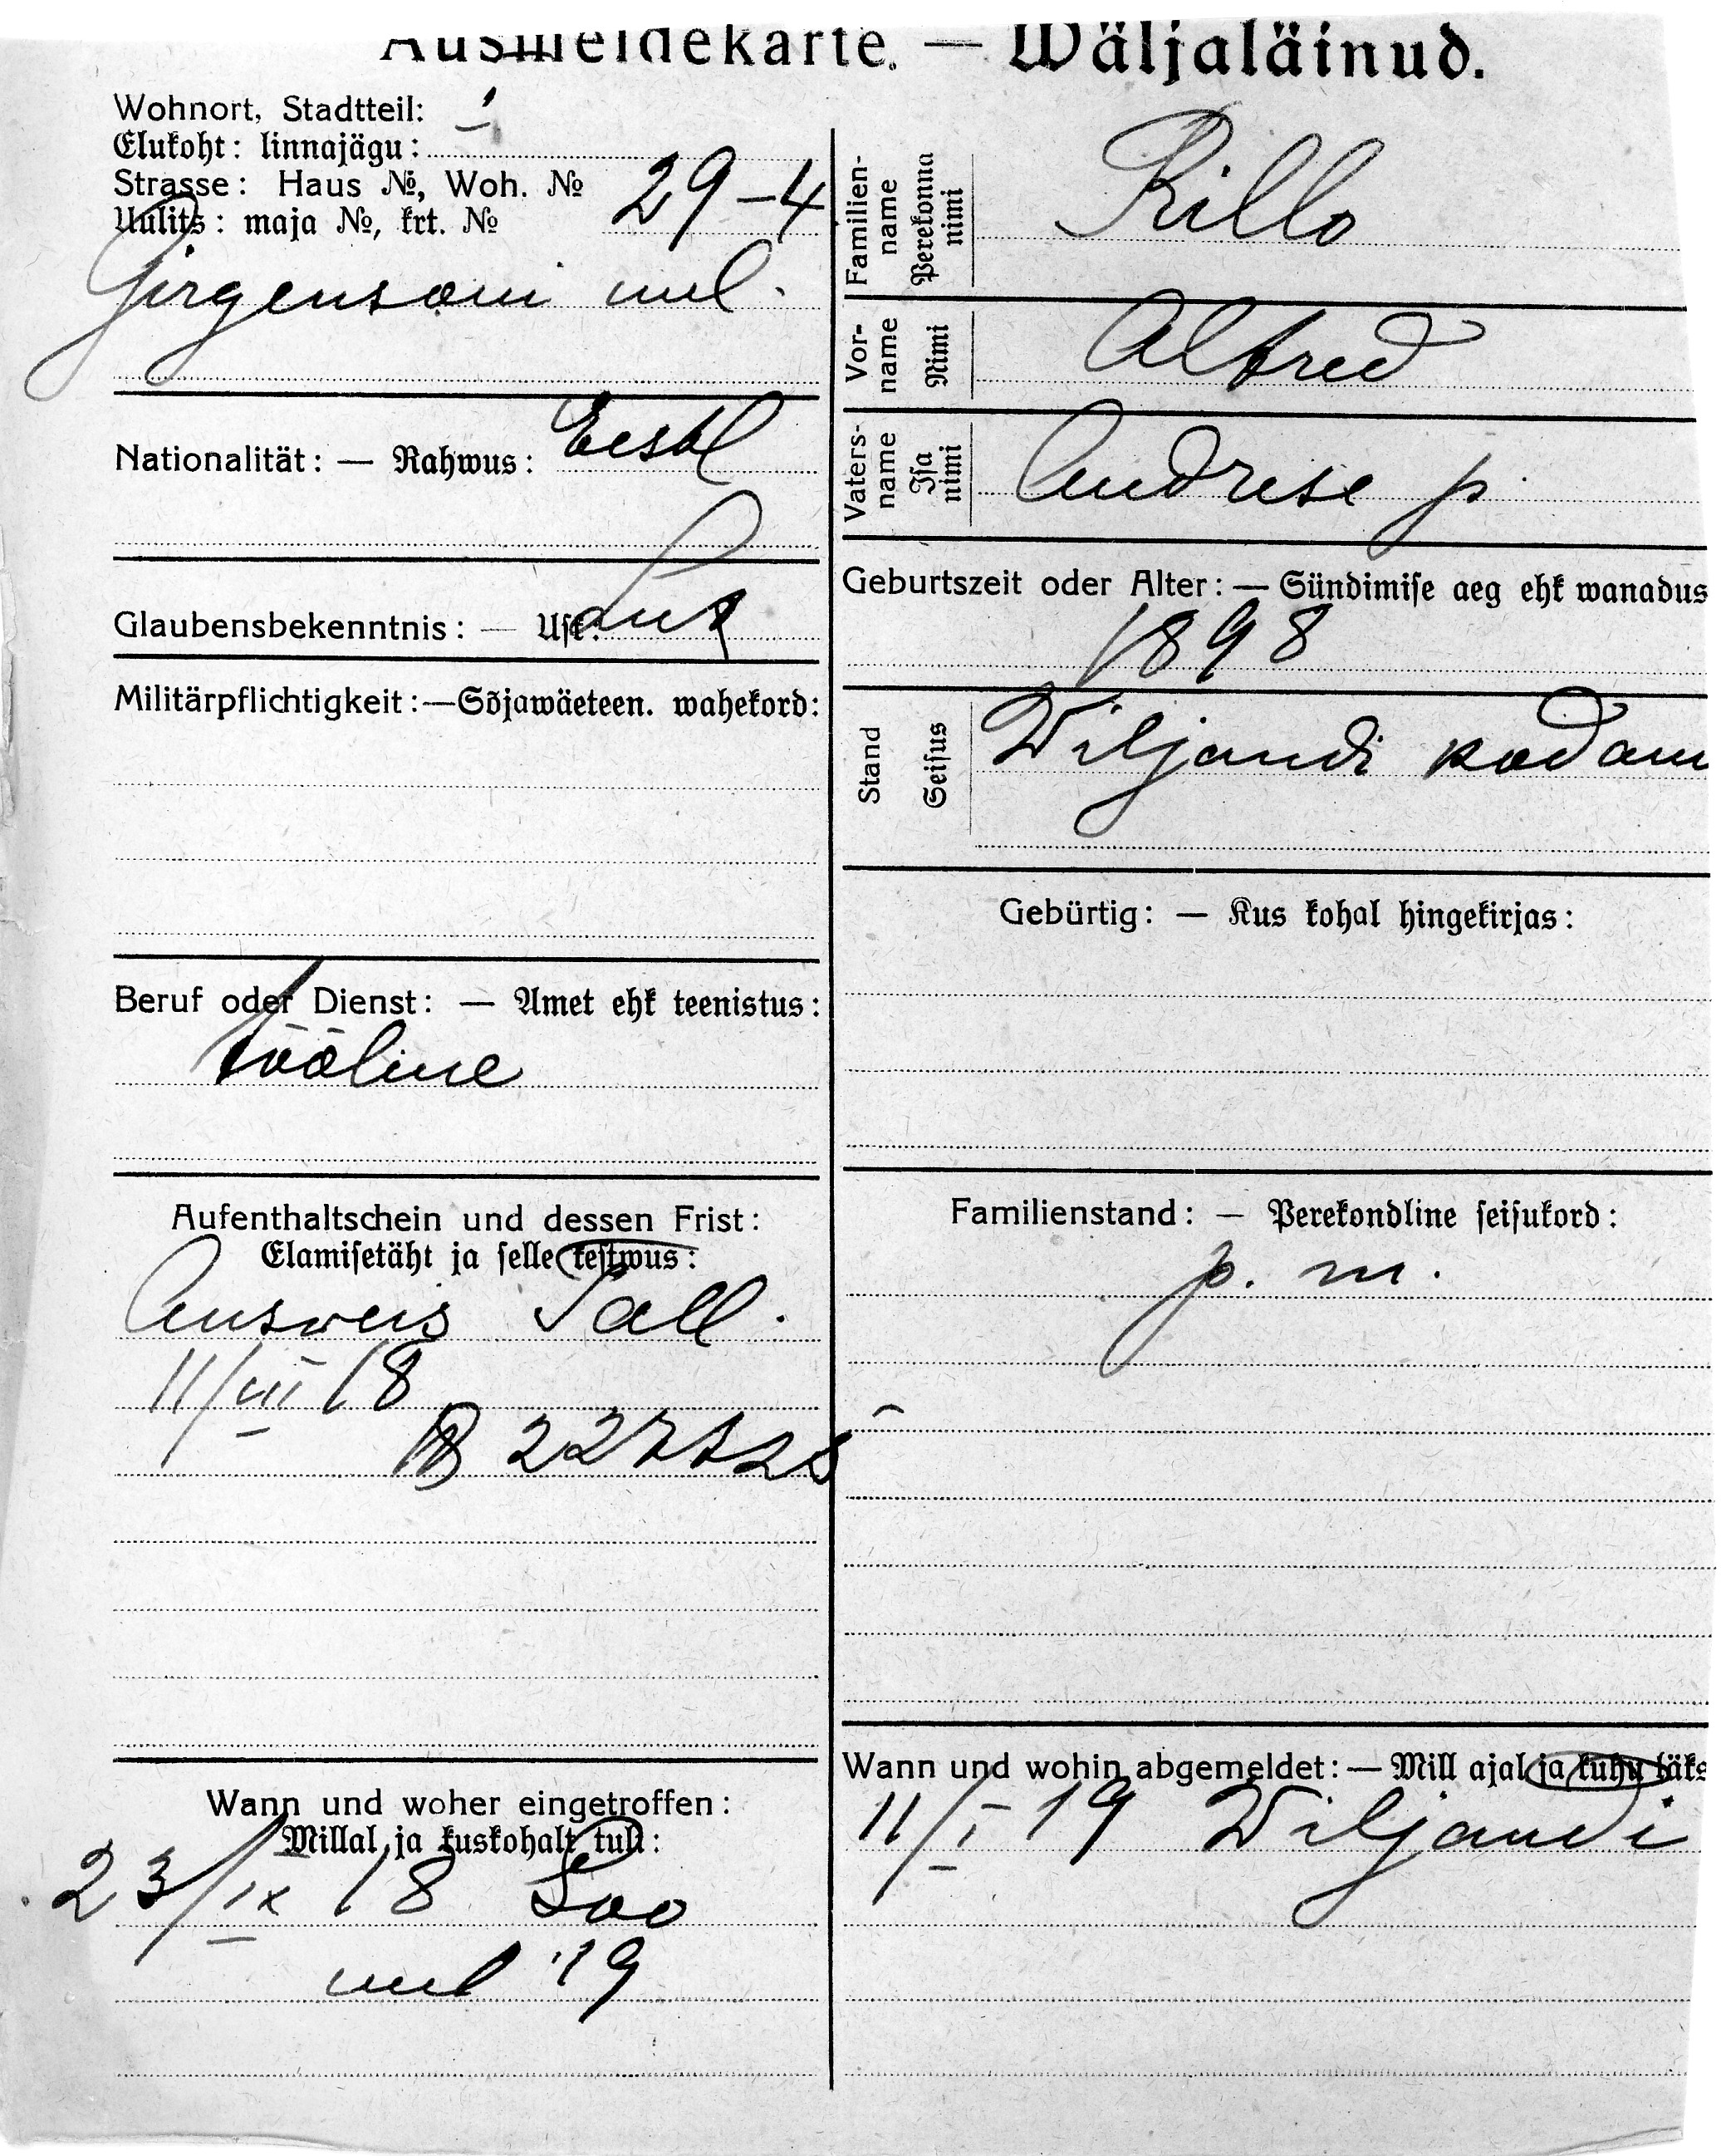 Ausmeldekarte. — Wäljaläinud.
Wohnort, Stadtteil: I
Elukoht: linnajägu:
Strasse: Haus №, Woh. № 29-4
Uulits: maja №, krt. №
Girgensoni uul.
Nationalität: — Rahwus: Eestl
Glaubensbekenntnis: — Usk: Lut
Militärpflichtigkeit:—Sõjawäeteen. wahekord:
Beruf oder Dienst: — Amet ehk teenistus:
tööline
Aufenthaltschein und dessen Frist:
Elamisetäht ja selle kestwus:
Ausweis Tall.
11/VII 18
B
Wann und woher eingetroffen:
Millal ja kuskohalt tuli:
23/IX 18 Soo
uul 19
Familien-name Perekonna nimi Rillo
Vor-name Nimi Alfred
Vaters-name Isa nimi Andrese p.
Geburtszeit oder Alter: — Sündimise aeg ehk wanadus
1898
Stand Seisus Wiljandi kodan
Gebürtig: — Kus kohal hingekirjas:
Familienstand: — Perekondline seisukord:
p. m.
Wann und wohin abgemeldet: — Mill ajal ja kuhu läks
11/I 19 Wiljandi